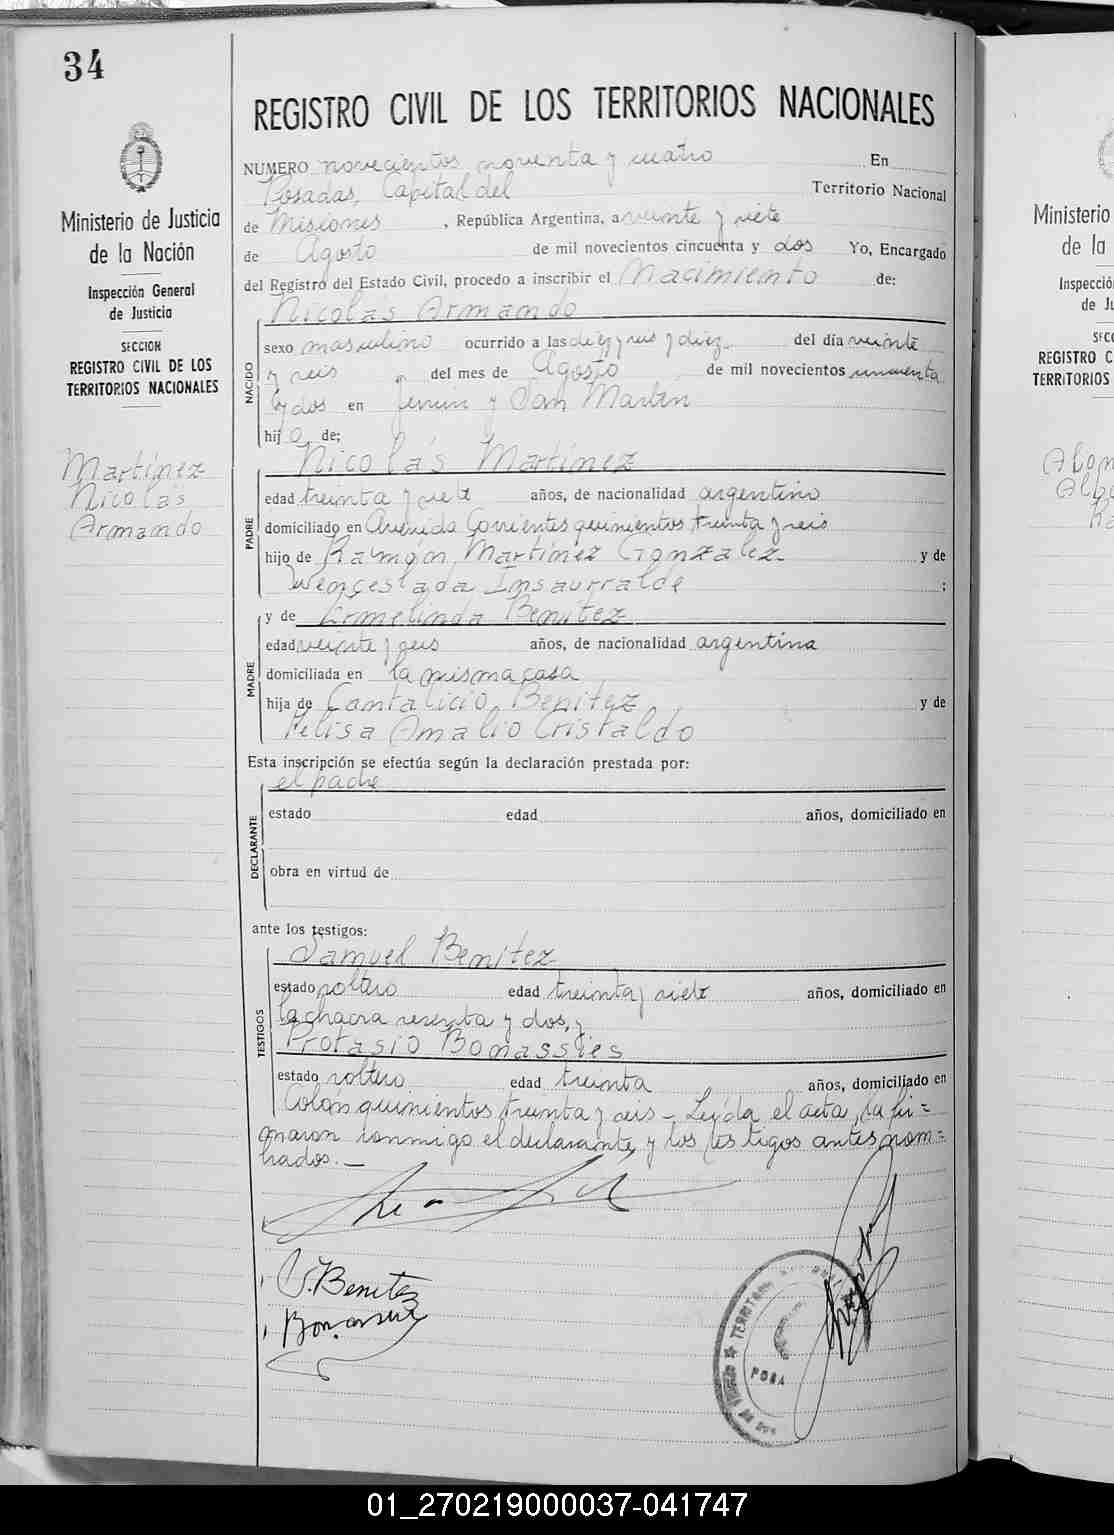 34
REGISTRO CIVIL DE LOS TERRITORIOS NACIONALES
Ministerio de Justicia
de la Nación
Inspección General
de Justicia
SECCION
REGISTRO CIVIL DE LOS
TERRITORIOS NACIONALES
Martínez
Nicolás
Armando
NUMERO novecientos noventa y cuatro En
Posadas, Capital del Territorio Nacional
de Misiones, República Argentina, a veinte y siete
de Agosto de mil novecientos cincuenta y dos Yo, Encargado
del Registro del Estado Civil, procedo a inscribir el Nacimiento de:
NACIDO
Nicolás Armando
sexo masculino ocurrido a las diez y seis y diez del día veinte
y seis del mes de Agosto de mil novecientos cincuenta
y dos en Junin y San Martin
hijo de;
PADRE
Nicolás Martínez
edad treinta y siete años, de nacionalidad argentino
domiciliado en Avenida Corrientes quinientos treinta y seis
hijo de Ramón Martínez Gonzalez y de
Wenceslada Insaurralde ;
MADRE
y de Ermelinda Benítez
edad veinte y seis años, de nacionalidad argentina
domiciliada en la misma casa
hija de Cantalicio Benitez y de
Felisa Amalio Cristaldo
Esta inscripción se efectúa según la declaración prestada por:
DECLARANTE
el padre
estado edad años, domiciliado en
obra en virtud de
ante los testigos:
TESTIGOS
Samuel Benítez
estado soltero edad treinta y siete años, domiciliado en
la chacra sesenta y dos, y
Protasio Bonassies
estado soltero edad treinta años, domiciliado en
Colón quinientos treinta y seis - Leída el acta, la fir=
maron conmigo el declarante y los testigos antes nom=
brados. —
S. Benitez
TERRITORI
POSA
Ministerio
de la
Inspecció
de Ju
SECC
REGISTRO C
TERRITORIOS
01_270219000037-041747